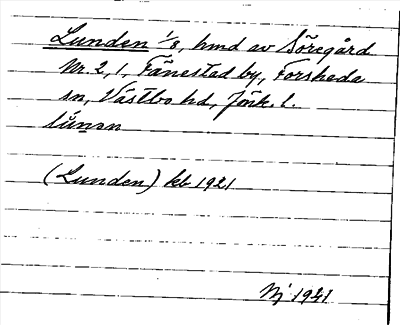 Lunden 1/8, hmd av Söregård
Nr. 2, 1, Fånestad by, Forsheda
sn, Västbo hd, Jönk. l.
lùnən
(Lunden) kb 1921
Nj 1941